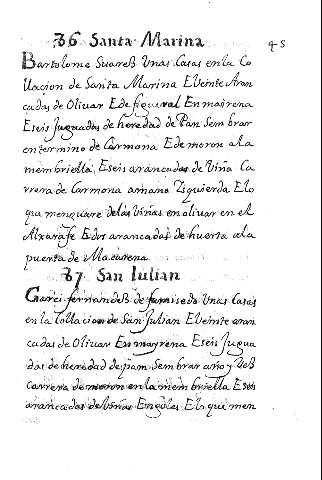 36 Santa Marina
Bartolome Suareß Unas Casas en la Co
llacion de Santa Marina E Veinte Aran
cadas de Olivar E de figueral En mairena
E seis Juguadas de heredad de Pan Sembrar
en termino de Carmona E de moron a la
membriella, E seis arancadas de Viña Ca
rrera de Carmona a mano Isquierda E lo
que menguare de las Viñas en olivar en el
Alxarafe E dos arancadas de huerta a la
puerta de Macarena
37 San Iulian
Garci fernandeß de Unas Casas
en la Collacion de San Julian E Veinte aran
cadas de Olivar En mayrena E seis Jugua
das de heredad de pam Sembrar año y Veß
Carrera de moron en la membriella E seis
arancadas de Viñas En E lo que men